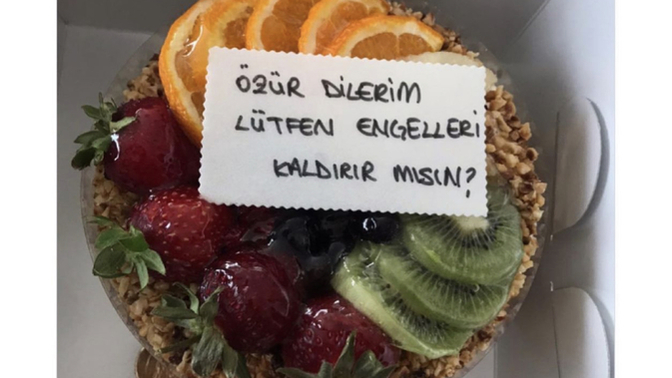 ÖZÜR DİLERİM
LÜTFEN ENGELLERİ
KALDIRIR MISIN?